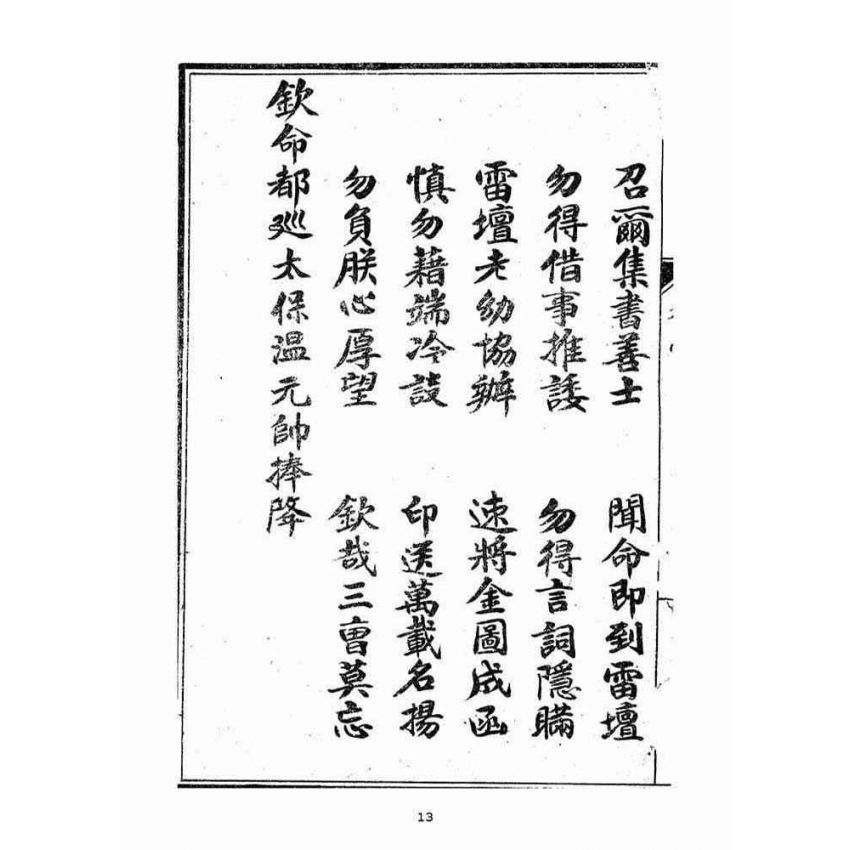 召爾集書善士　聞命即到雷壇
勿得借事推諉　勿得言詞隱瞞
雷壇老幼協辦　速將金圖成函
慎勿藉端冷談　印送萬載名揚
勿負朕心厚望　欽哉三曹莫忘
欽命都巡太保溫元帥捧降
13